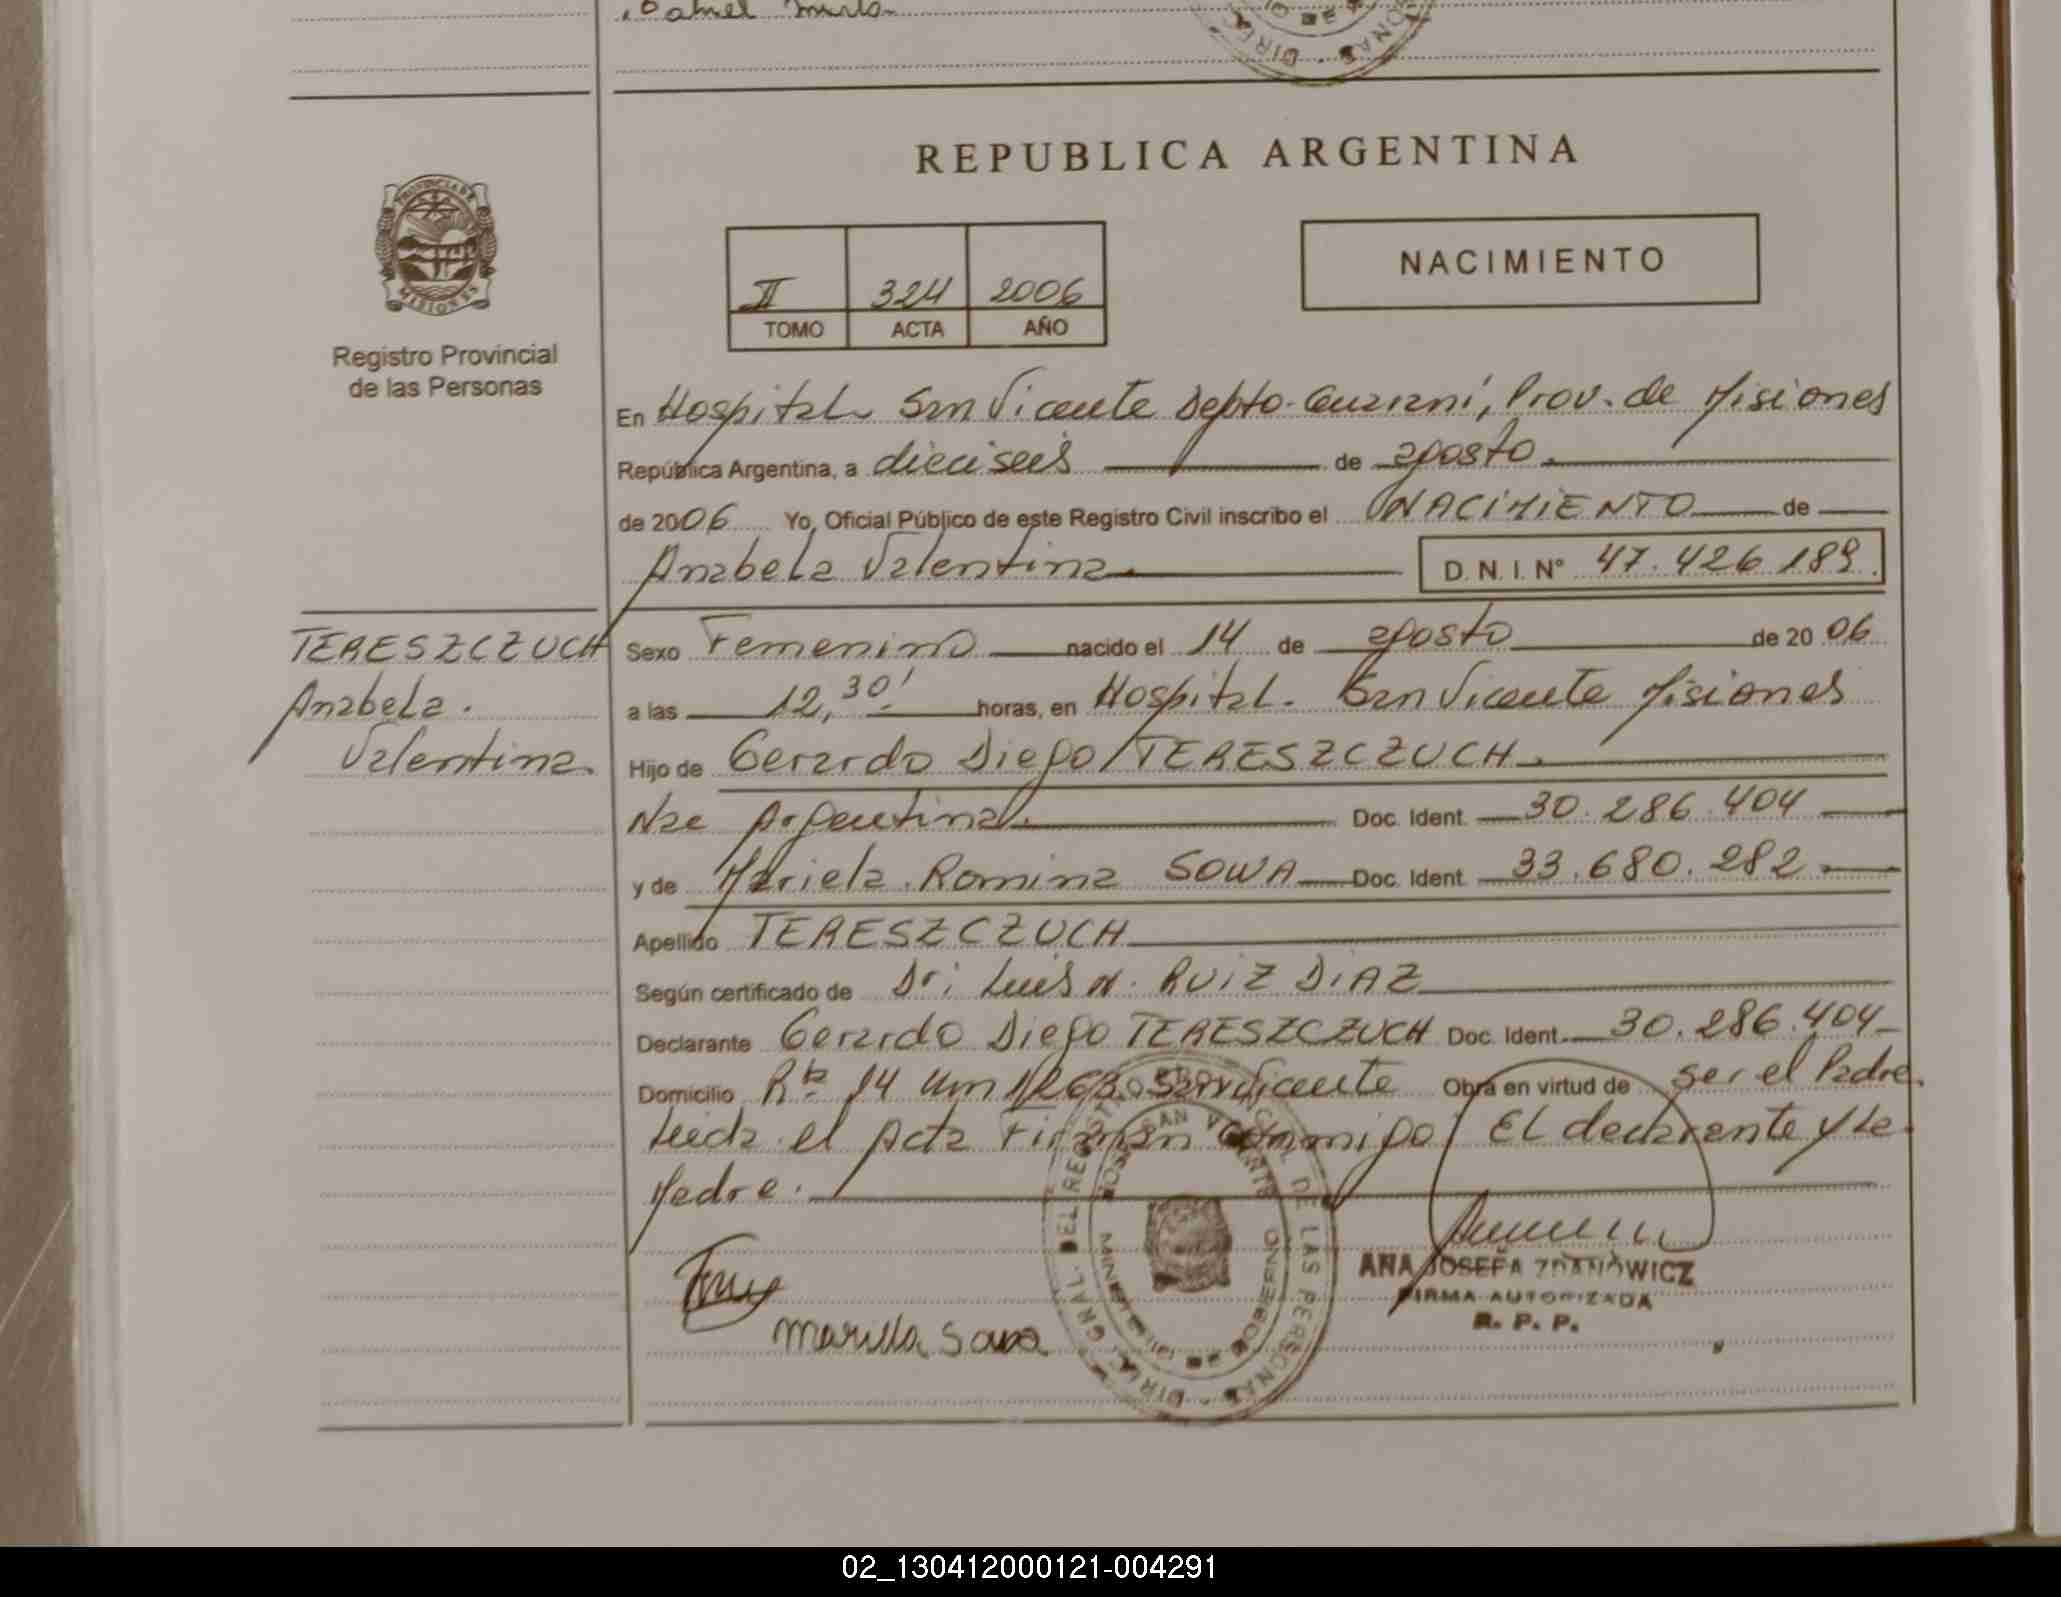 REPUBLICA ARGENTINA
PROVINCIA DE
MISIONES
Registro Provincial
de las Personas
II 324 2006
TOMO ACTA AÑO
NACIMIENTO
En Hospital San Vicente Depto. Guaraní, Prov. de Misiones
República Argentina, a dieciseis de agosto
de 2006 Yo, Oficial Público de este Registro Civil inscribo el NACIMIENTO de
Anabela Valentina D. N. I. N° 47.426.189
TERESZCZUCH
Anabela.
Valentina.
Sexo Femenino nacido el 14 de agosto de 20 06
a las 12,30' horas, en Hospital. San Vicente Misiones
Hijo de Gerardo Diego TERESZCZUCH
Nac Argentina. Doc. Ident. 30.286.404
y de Mariela Romina SOWA Doc. Ident. 33.680.282
Apellido TERESZCZUCH
Según certificado de Dr; Luis N. RUIZ DIAZ
Declarante Gerardo Diego TERESZCZUCH Doc. Ident. 30.286.404
Domicilio Rta 14 Km San Vicente Obra en virtud de ser el Padre.
Leida el Acta Firman conmigo El declarante y la
Madre.
DIREC. GRAL. DEL REGISTRO PROVINCIAL DE LAS PERSONAS
HOSP. SAN VICENTE
MINISTERIO DE GOBIERNO
Mariela Sowa
ANA JOSEFA ZDANOWICZ
FIRMA AUTORIZADA
R. P. P.
02_130412000121-004291